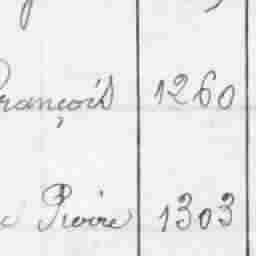 François 1260
Pierre 1303